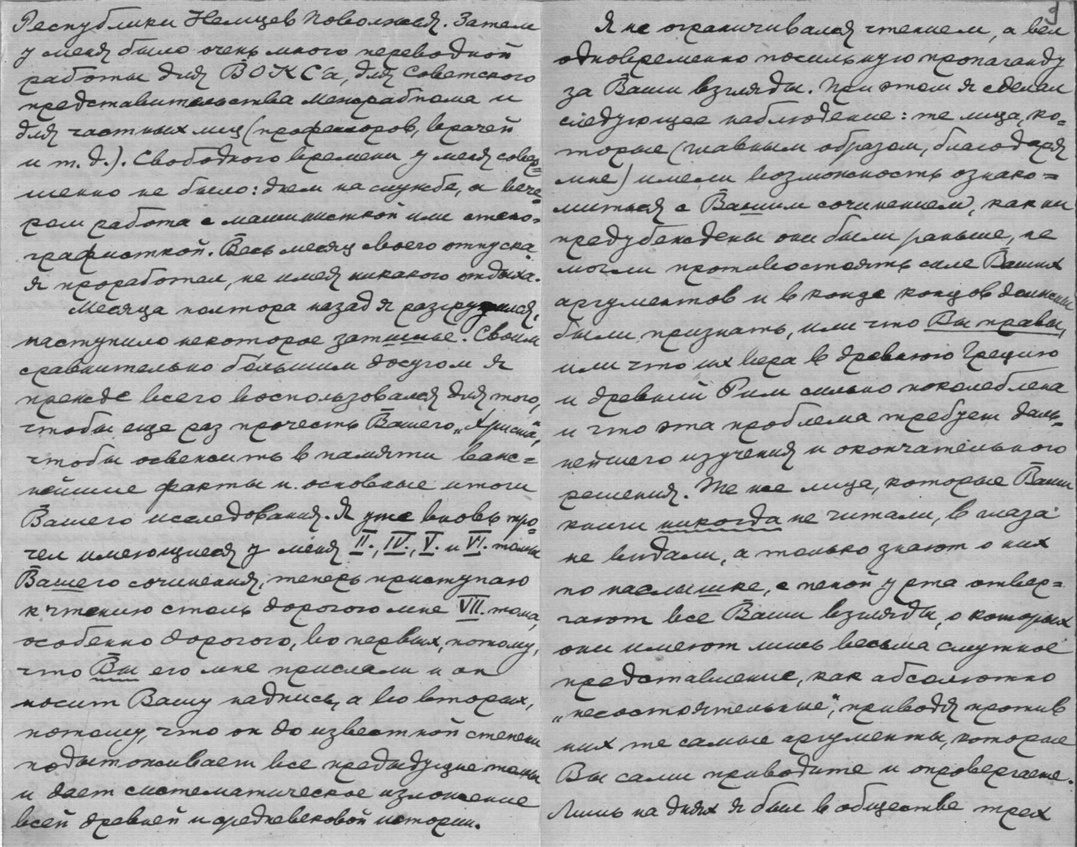 Республики Немцев Поволжья. Затем
у меня было очень много переводной
работы для ВОКСа, для Советского
представительства Межрабпома и
для частных лиц (профессоров, врачей
и т. д.). Свободного времени у меня совер=
шенно не было: днем на службе, а вече=
ром работа с машинисткой или стено=
графисткой. Весь месяц своего отпуска
я проработал, не имея никакого отдыха.
Месяца полтора назад я разгрузился,
наступило некоторое затишье. Своим
сравнительно бо́льшим досугом я
прежде всего воспользовался для того,
чтобы еще раз прочесть Вашего „Христа",
чтобы освежить в памяти важ=
нейшие факты и основные итоги
Вашего исследования. Я уже вновь про=
чел имеющиеся у меня II., IV., V. и VI. томы
Вашего сочинения, теперь приступаю
к чтению столь дорогого мне VII. тома,
особенно дорогого, во первых, потому,
что Вы его мне прислали и он
носит Вашу надпись, а во вторых,
потому, что он до известной степени
подытоживает все предыдущие томы
и дает систематическое изложение
всей древней и средневековой истории.
9
Я не ограничивался чтением, а вел
одновременно посильную пропаганду
за Ваши взгляды. При этом я сделал
следующее наблюдение: те лица, ко=
торые (главным образом, благодаря
мне) имели возможность ознако=
миться с Вашим сочинением, как ни
предубеждены они были раньше, не
могли противостоять силе Ваших
аргументов и в конце концов должны
были признать, или что Вы правы,
или что их вера в древнюю Грецию
и древний Рим сильно поколеблена
и что эта проблема требует даль=
нейшего изучения и окончательного
решения. Те же лица, которые Ваши
книги никогда не читали, в глаза
не видали, а только знают о них
по наслышке, с пеной у рта отвер=
гают все Ваши взгляды, о которых
они имеют лишь весьма смутное
представление, как абсолютно
„несостоятельные", приводя против
них те самые аргументы, которые
Вы сами приводите и опровергаете.
Лишь на днях я был в обществе трех